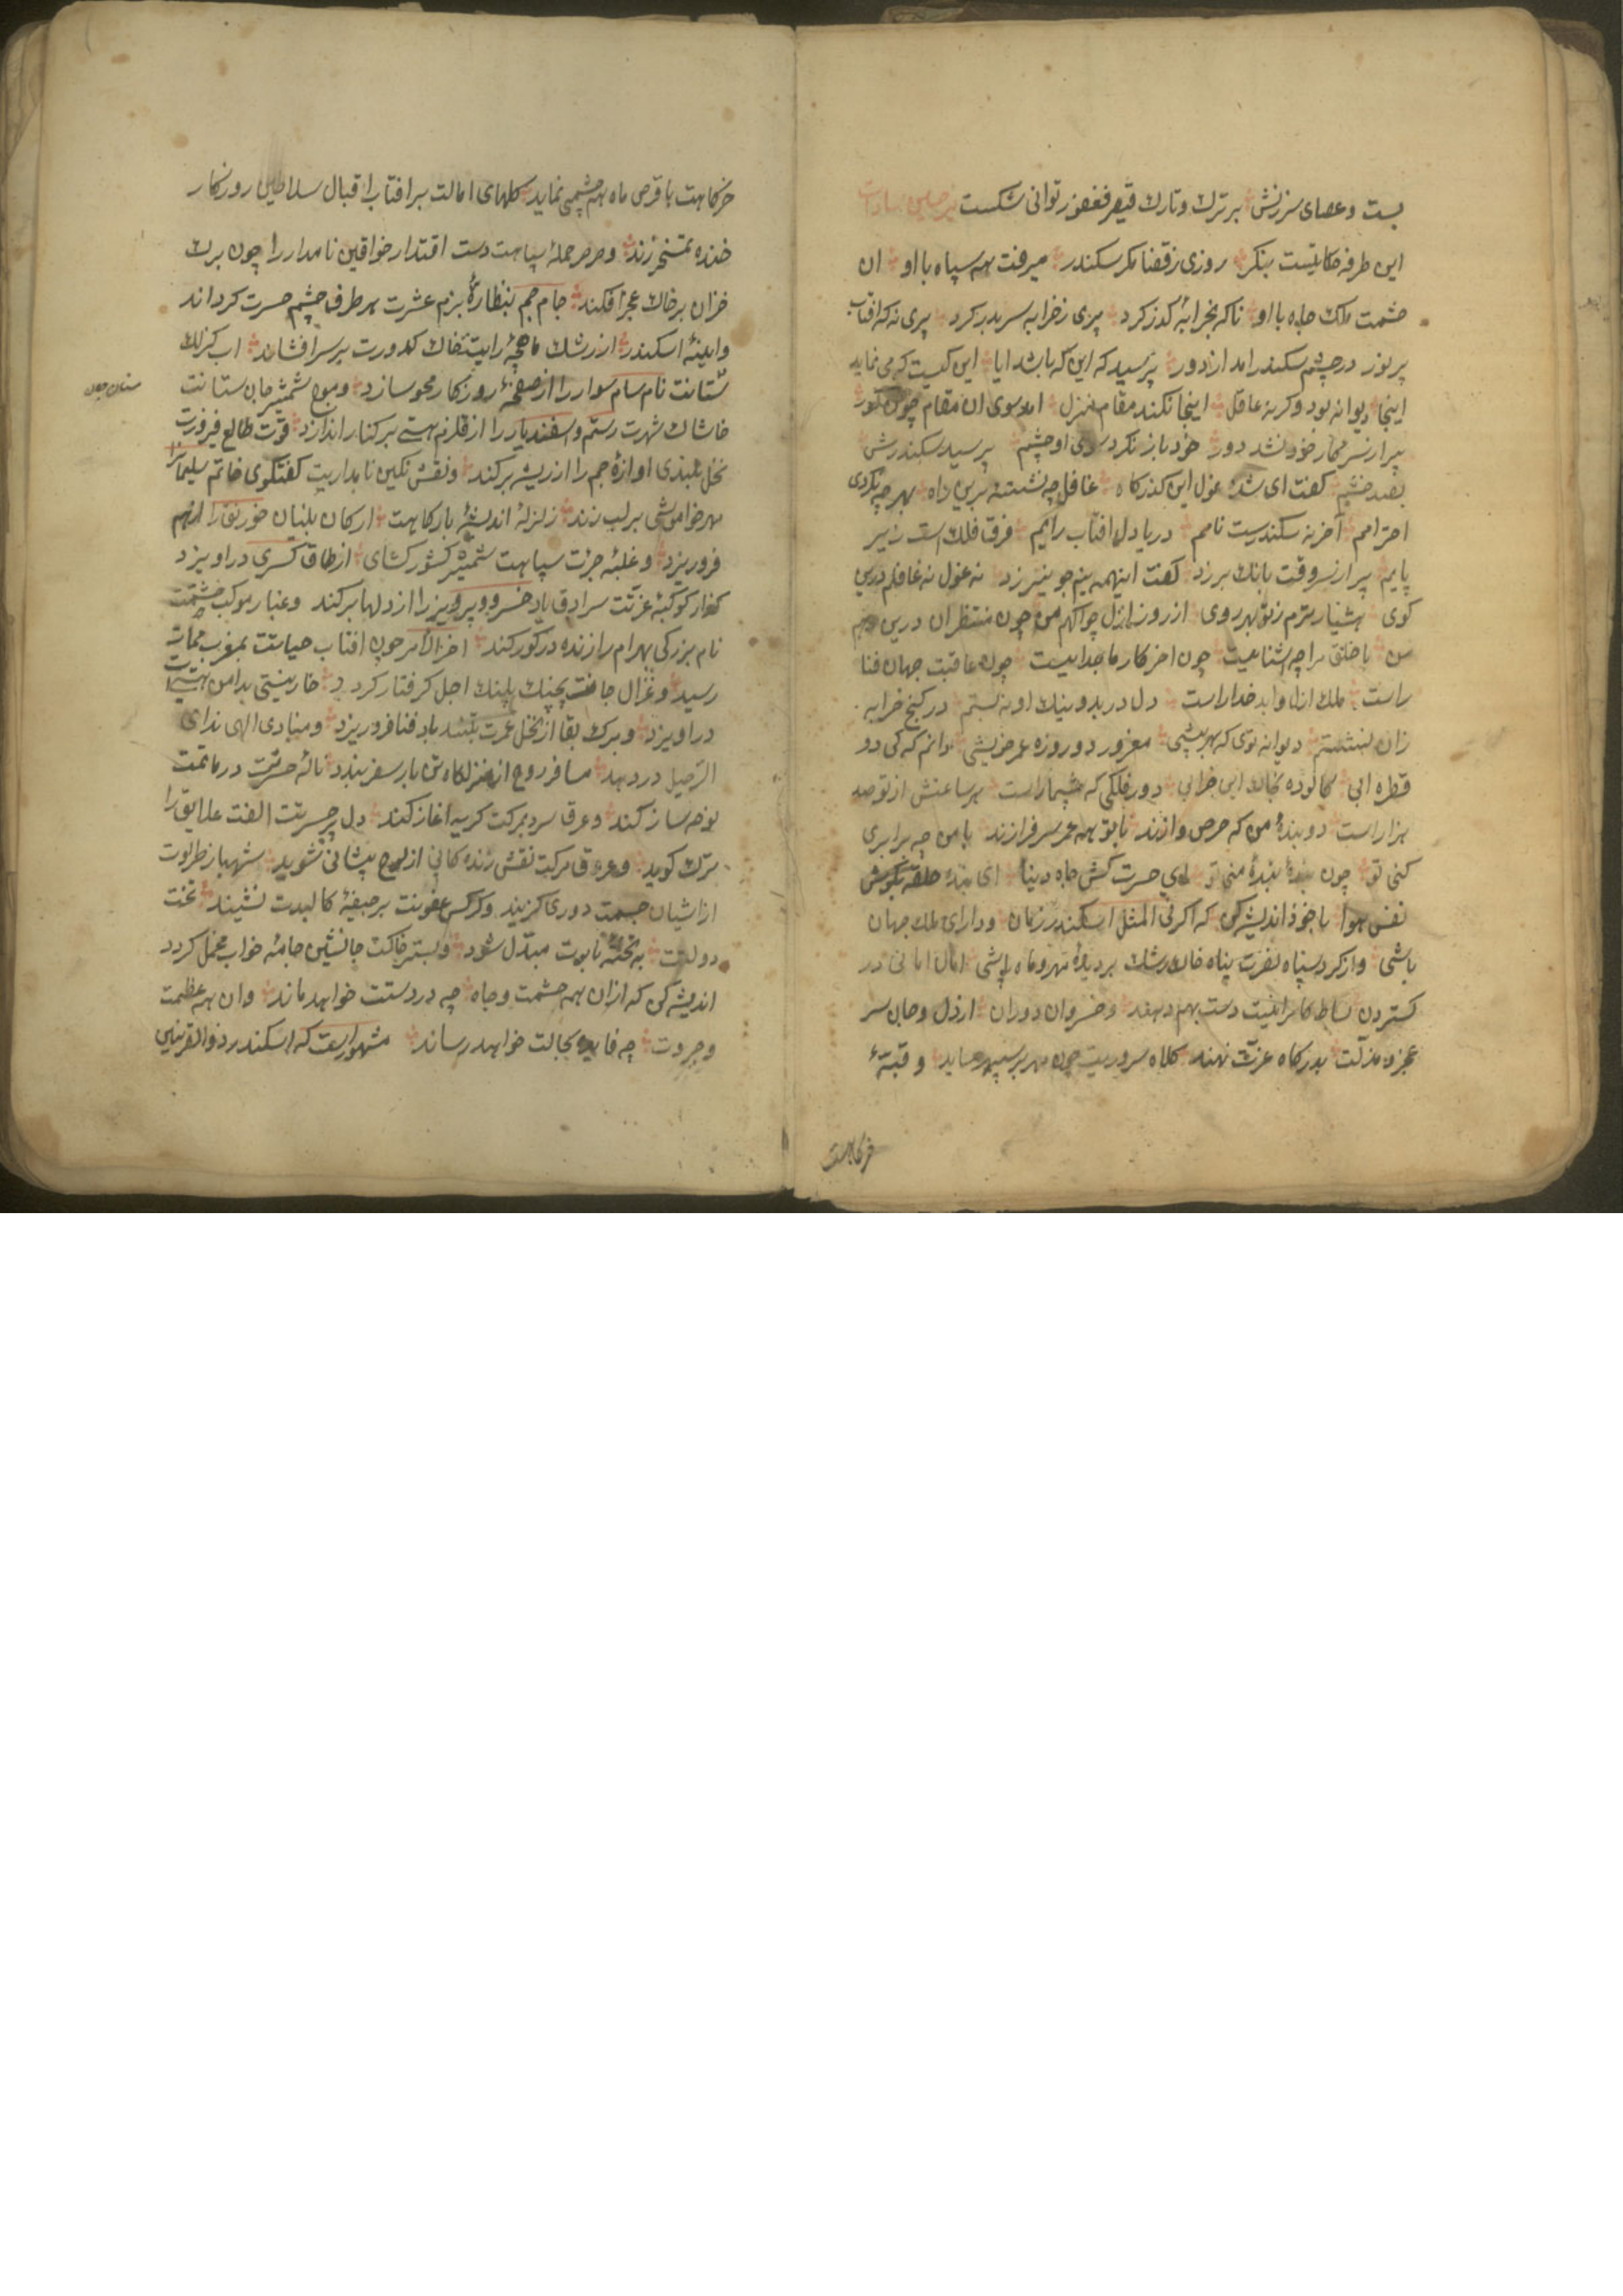 بست و عصای سرزنش بر ترك و تارك قیصر و فغفور توانی شکست
این طرفه حکایتست بنکر روزی ز قضا مکر سکندر میرفت همه سپاه با او ان
حشمت ملك و جاه با او ناکه بخرابهٔ کذر کرد پیری ز خرابه سر بدر کرد پیری نه که افتاب
پر نور در چشم سکندر امد از دور پرسید که این که باشد ایا این کیست که می نماید
اینجا دیوانه بود و کرنه عاقل اینجا نکند مقام و منزل امد سوی ان مقام چون کور
پیر از سر کار خود نشد دور خود باز نکرد سوی او چشم پرسید سکندرش
بصد خشم کفت ای شده غول این کذرکاه غافل چه نشستهٔ برین راه بهر چه نکردی
احترامم آخر نه سکندرست نامم دریا دل افتاب رایم فرق فلك است زیر
پایم پیر از سر وقت بانك بر زد کفت اینهمه نیم جو نیرزد نه غول نه غافلم درین
کوی هشیار ترم ز تو بهر روی از روز ازل چو اکهم من چون منتظران درین رهم
من با خلق مرا چه اشناییست چون اخر کار ما جداییست چون عاقبت جهان فنا
راست ملك ازل و ابد خدا راست دل در بد و نیك او نبستم در کنج خرابه
زان نشستم دیوانه توی که بهر بیشی مغرور دو روزه عمر خویشی دانم که کی دو
قطره ابی کالوده بخاك این خرابی دور فلکی که بیشمار است هر ساعتش از تو صد
هزار است دو بندهٔ من که حرص و ازند با تو همه عمر سرفرازند با من چه برابری
کنی تو چون بندهٔ بندهٔ منی تو ای حسرت کش جاه دنیا ای بندهٔ حلقه بکوش
نفس و هوا با خود اندیشه کن که اکر فی المثل اسکندر زمان و دارای ملك جهان
باشی و از کرد سپاه نصرت پناه خاك رشك بر دیدهٔ مهر و ماه پاشی امال امانی در
کستردن بساط کامرانیت دست بهم دهند و خسروان دوران از دل و جان سر
عجز و مذلت بدرکاه عزتت نهند کلاه سروریت چون مهر بر سپهر ساید و قبهٔ
خرکاهت
خرکاهت با قرص ماه هم چشمی نماید کلهای امالت بر افتاب اقبال سلاطین روزکار
خنده تمسخر زند و صرصر حملهٔ سپاهت دست اقتدار خواقین نامدار را چون برك
خزان بر خاك عجز افکند جام جم بنظارهٔ بزم عشرت هر طرف چشم حسرت کرداند
و ایینهٔ اسکندر از رشك ماهچهٔ رایتت خاك کدورت بر سر افشاند اب کزلك
ستانت نام سام سوار را از صفحهٔ روزکار محو سازد و موج شمشیر جان ستانت
سنان
خاشاك شهرت رستم و اسفندیار را از قلزم هستی بر کنار اندازد قوت طالع فیروزت
نخل بلندی اوازهٔ جم را از ریشه برکند و نقش نکین نامداریت کفتکوی خاتم سلیمان را
مهر خاموشی بر لب زند زلزلهٔ اندیشهٔ بارکاهت ارکان بنیان خورنق را از هم
فرو ریزد و غلبهٔ جرات سپاهت شمشیر کشور کشای از طاق کسری در اویزد
کوکبهٔ عزتت سرادق یاد خسرو و پرویز را از دلها برکند و غبار موکب حشمتت
نام بزرکی بهرام را زنده در کور کند اخر الامر چون افتاب حیاتت بمغرب ممات
رسید و غزال جانت بچنك پلنك اجل کرفتار کردد خار نیستی بدامن هستیت
در اویزد و برك بقا از نخل عمرت بتند باد فنا فرو ریزد و منادی الهی ندای
الرحیل در دهد مسافر روح از منزلکاه تن بار سفر بندد ناله حسرتت در ماتمت
نوحه ساز کند و عرق سرد بمرکت کریه اغاز کند دل پر حسرتت الفت علایق را
ترك کوید و عرق مرکت نقش زندکانی از لوح پیشانی شوید شهباز طرفوت
از اشیان جسمت دوری کزیند و کرکس عفونت بر جیفهٔ کالبدت نشیند تخت
دولتت به تختهٔ تابوت مبدل شود و بستر خاکت جانشین جامهٔ خواب مخمل کردد
اندیشه کن که از ان همه حشمت و جاه چه در دستت خواهد ماند و ان همه عظمت
و جبروت چه فایده بحالت خواهد رساند مشهور است که اسکندر ذو القرنین